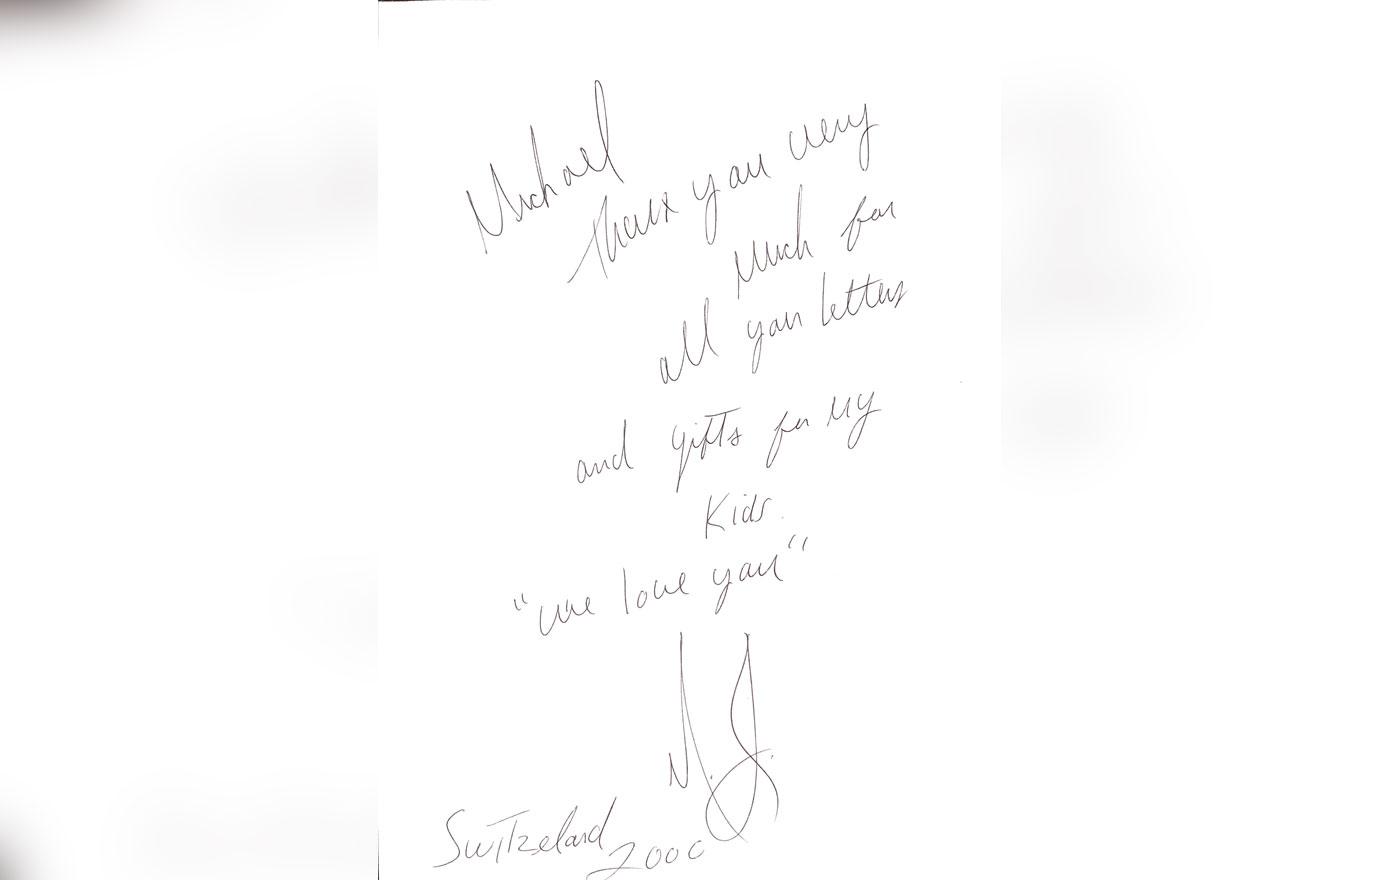 Michael
thanx you very
Much for
all your letters
and gifts for My
Kids.
"we love you"
M.J.
Switzeland
2000